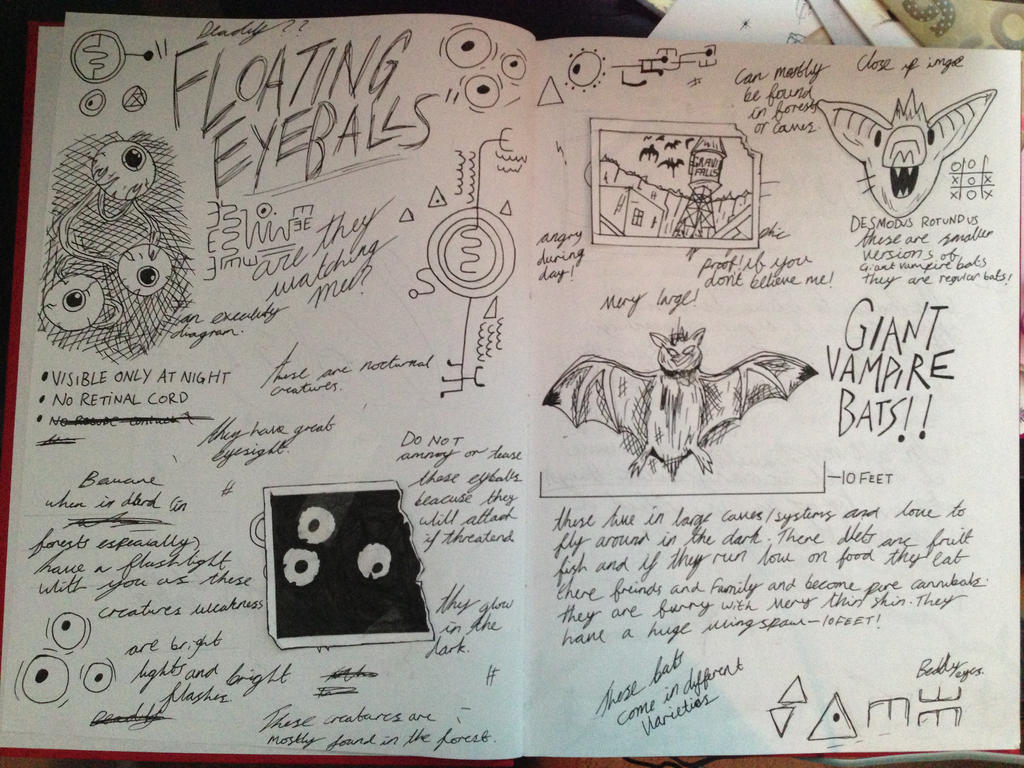 Deadly??
FLOATING
EYEBALLS
are they
watching
me?
an exeuality
diagram.
• VISIBLE ONLY AT NIGHT
• NO RETINAL CORD
these are nocturnal
creatures.
they have great
eyesight.
Beware
when in
forests especially,
have a flashlight
with you as these
creatures weakness
are bright
lights and bright
flashes.
DO NOT
annoy or tease
these eyeballs
beacuse they
will attack
if threatend
they glow
in the
dark.
These creatures are
mostly found in the forest.
Can mostly
be found
in forests
or caves.
Close up
GRAVITY
FALLS
angry
during
day!
Proof! if you
dont believe me!
very large!
O
X X
X O X
DESMODUS ROTUNDUS
these are smaller
versions of
Giant vampire bats
they are regular bats!
GIANT
VAMPIRE
BATS!!
10 FEET
these live in large caves/systems and love to
fly around in the dark. There diets are fruit
fish and if they run low on food they eat
there freinds and family and become pure cannibals.
they are furry with very thin skin. They
have a huge wingspan - 10 FEET!
These bats
come in different
varieties
Beddy
eyes.